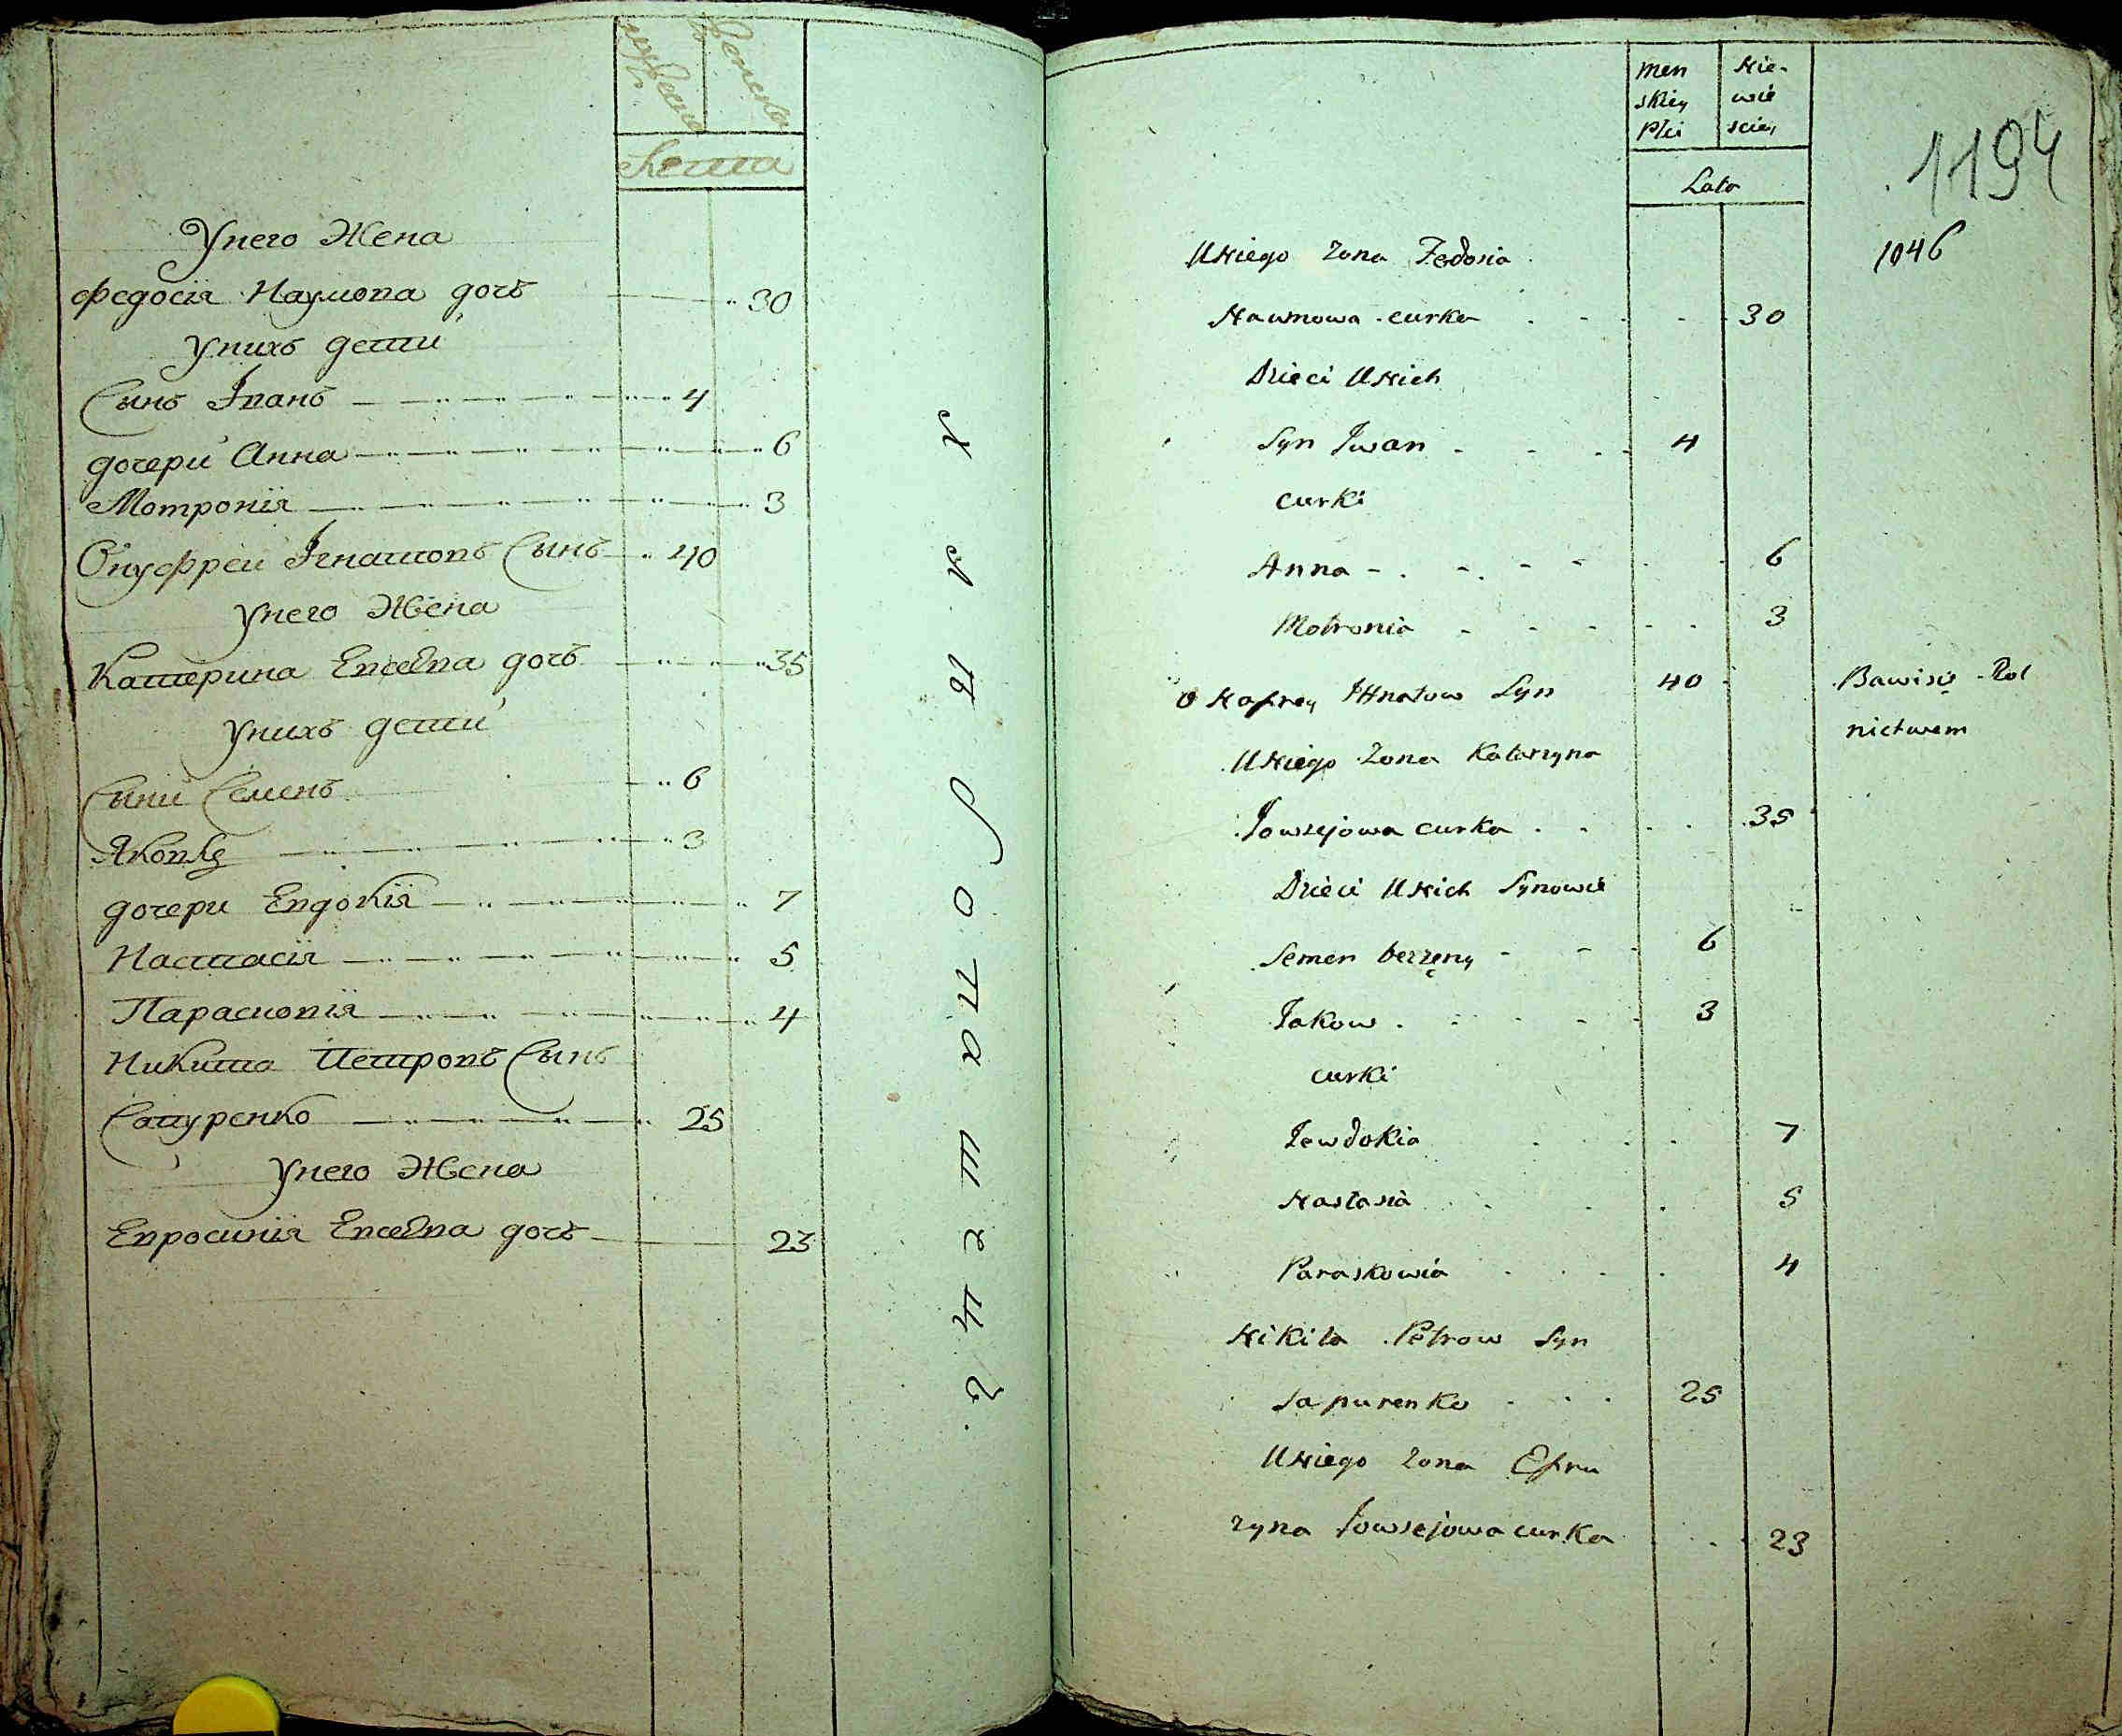 мужеска
женска
Лета
Унего Жена
Федосія Наумова дочъ 30
Унихъ дети
Сынъ Іванъ 4
дочери Анна 6
Мотронія 3
Онуфреи Ігнатовъ Сынъ 40
Унего Жена
Катерина Евсеева дочъ 35
Унихъ дети
Сыни Семенъ 6
Яковъ 3
дочери Евдокія 7
Настасія 5
Парасковія 4
Никита Петровъ Сынъ
Сапуренко 25
Унего Жена
Евросинія Евсеева дочъ 23
men Nie-
skiey wie
Płci sciey
Lata
1194
1046
U Niego Zona Fedosia
Naumowa curka 30
Dzieci U Nich
Syn Iwan 4
curki
Anna 6
Motronia 3
O Nafrey IHnatow Syn 40 Bawisię Rol
nictwem
U Niego Zona Katarzyna
Jowsejowa curka 35
Dzieci U Nich Synowie
Semen bezzęny 6
Jakow 3
curki
Jewdokia 7
Nastasia 5
Paraskowia 4
Nikita Petrow Syn
Sapurenko 25
U Niego Zona Efru
zyna Jowsejowa curka 23